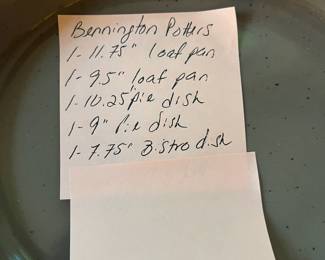 Bennington Potters
1- 11.75" loaf pan
1- 9.5" loaf pan
1- 10.25" pie dish
1- 9" Pie dish
1- 7.75" Bistro dish